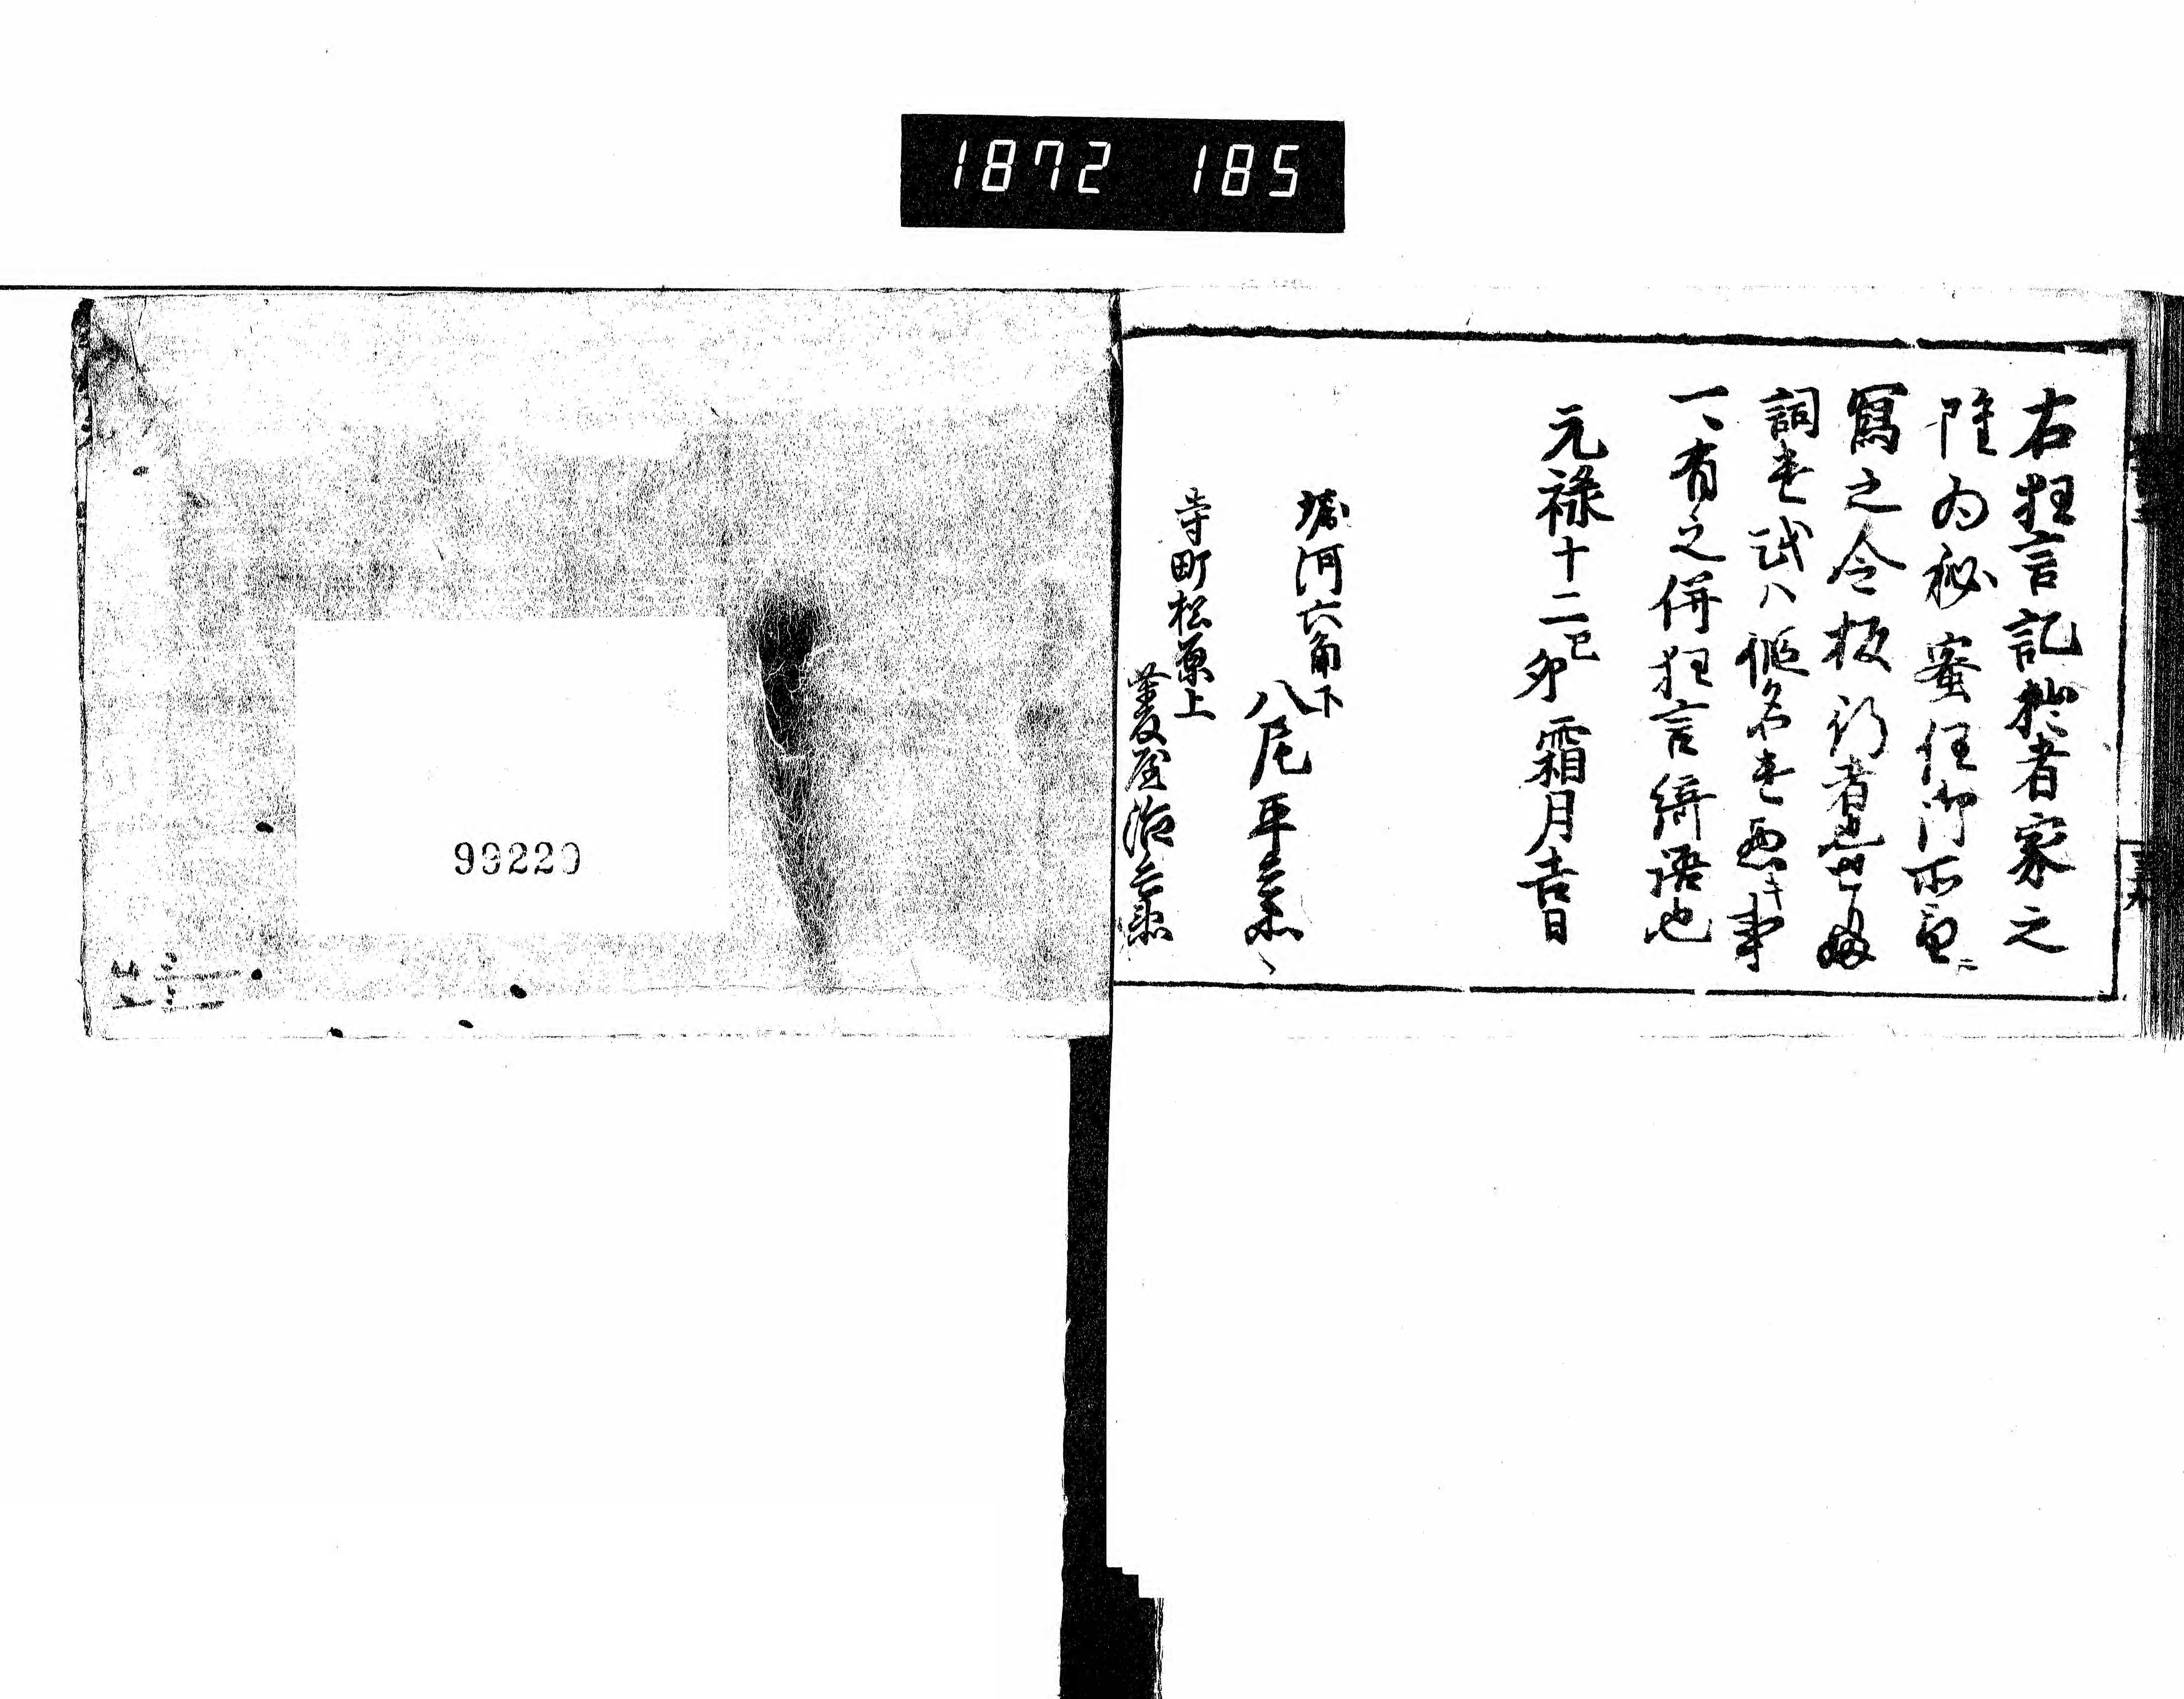 1872 185
右狂言記於者家之
雖為秘蜜任御所望ニ
寫之令板行者也世
詞遣或ハ仮名遣悪キ事
一、有之併狂言綺語也
元禄十二己卯霜月吉日
堀河六角下
八尾平兵衛
寺町松原上
菱屋治兵衛
99220